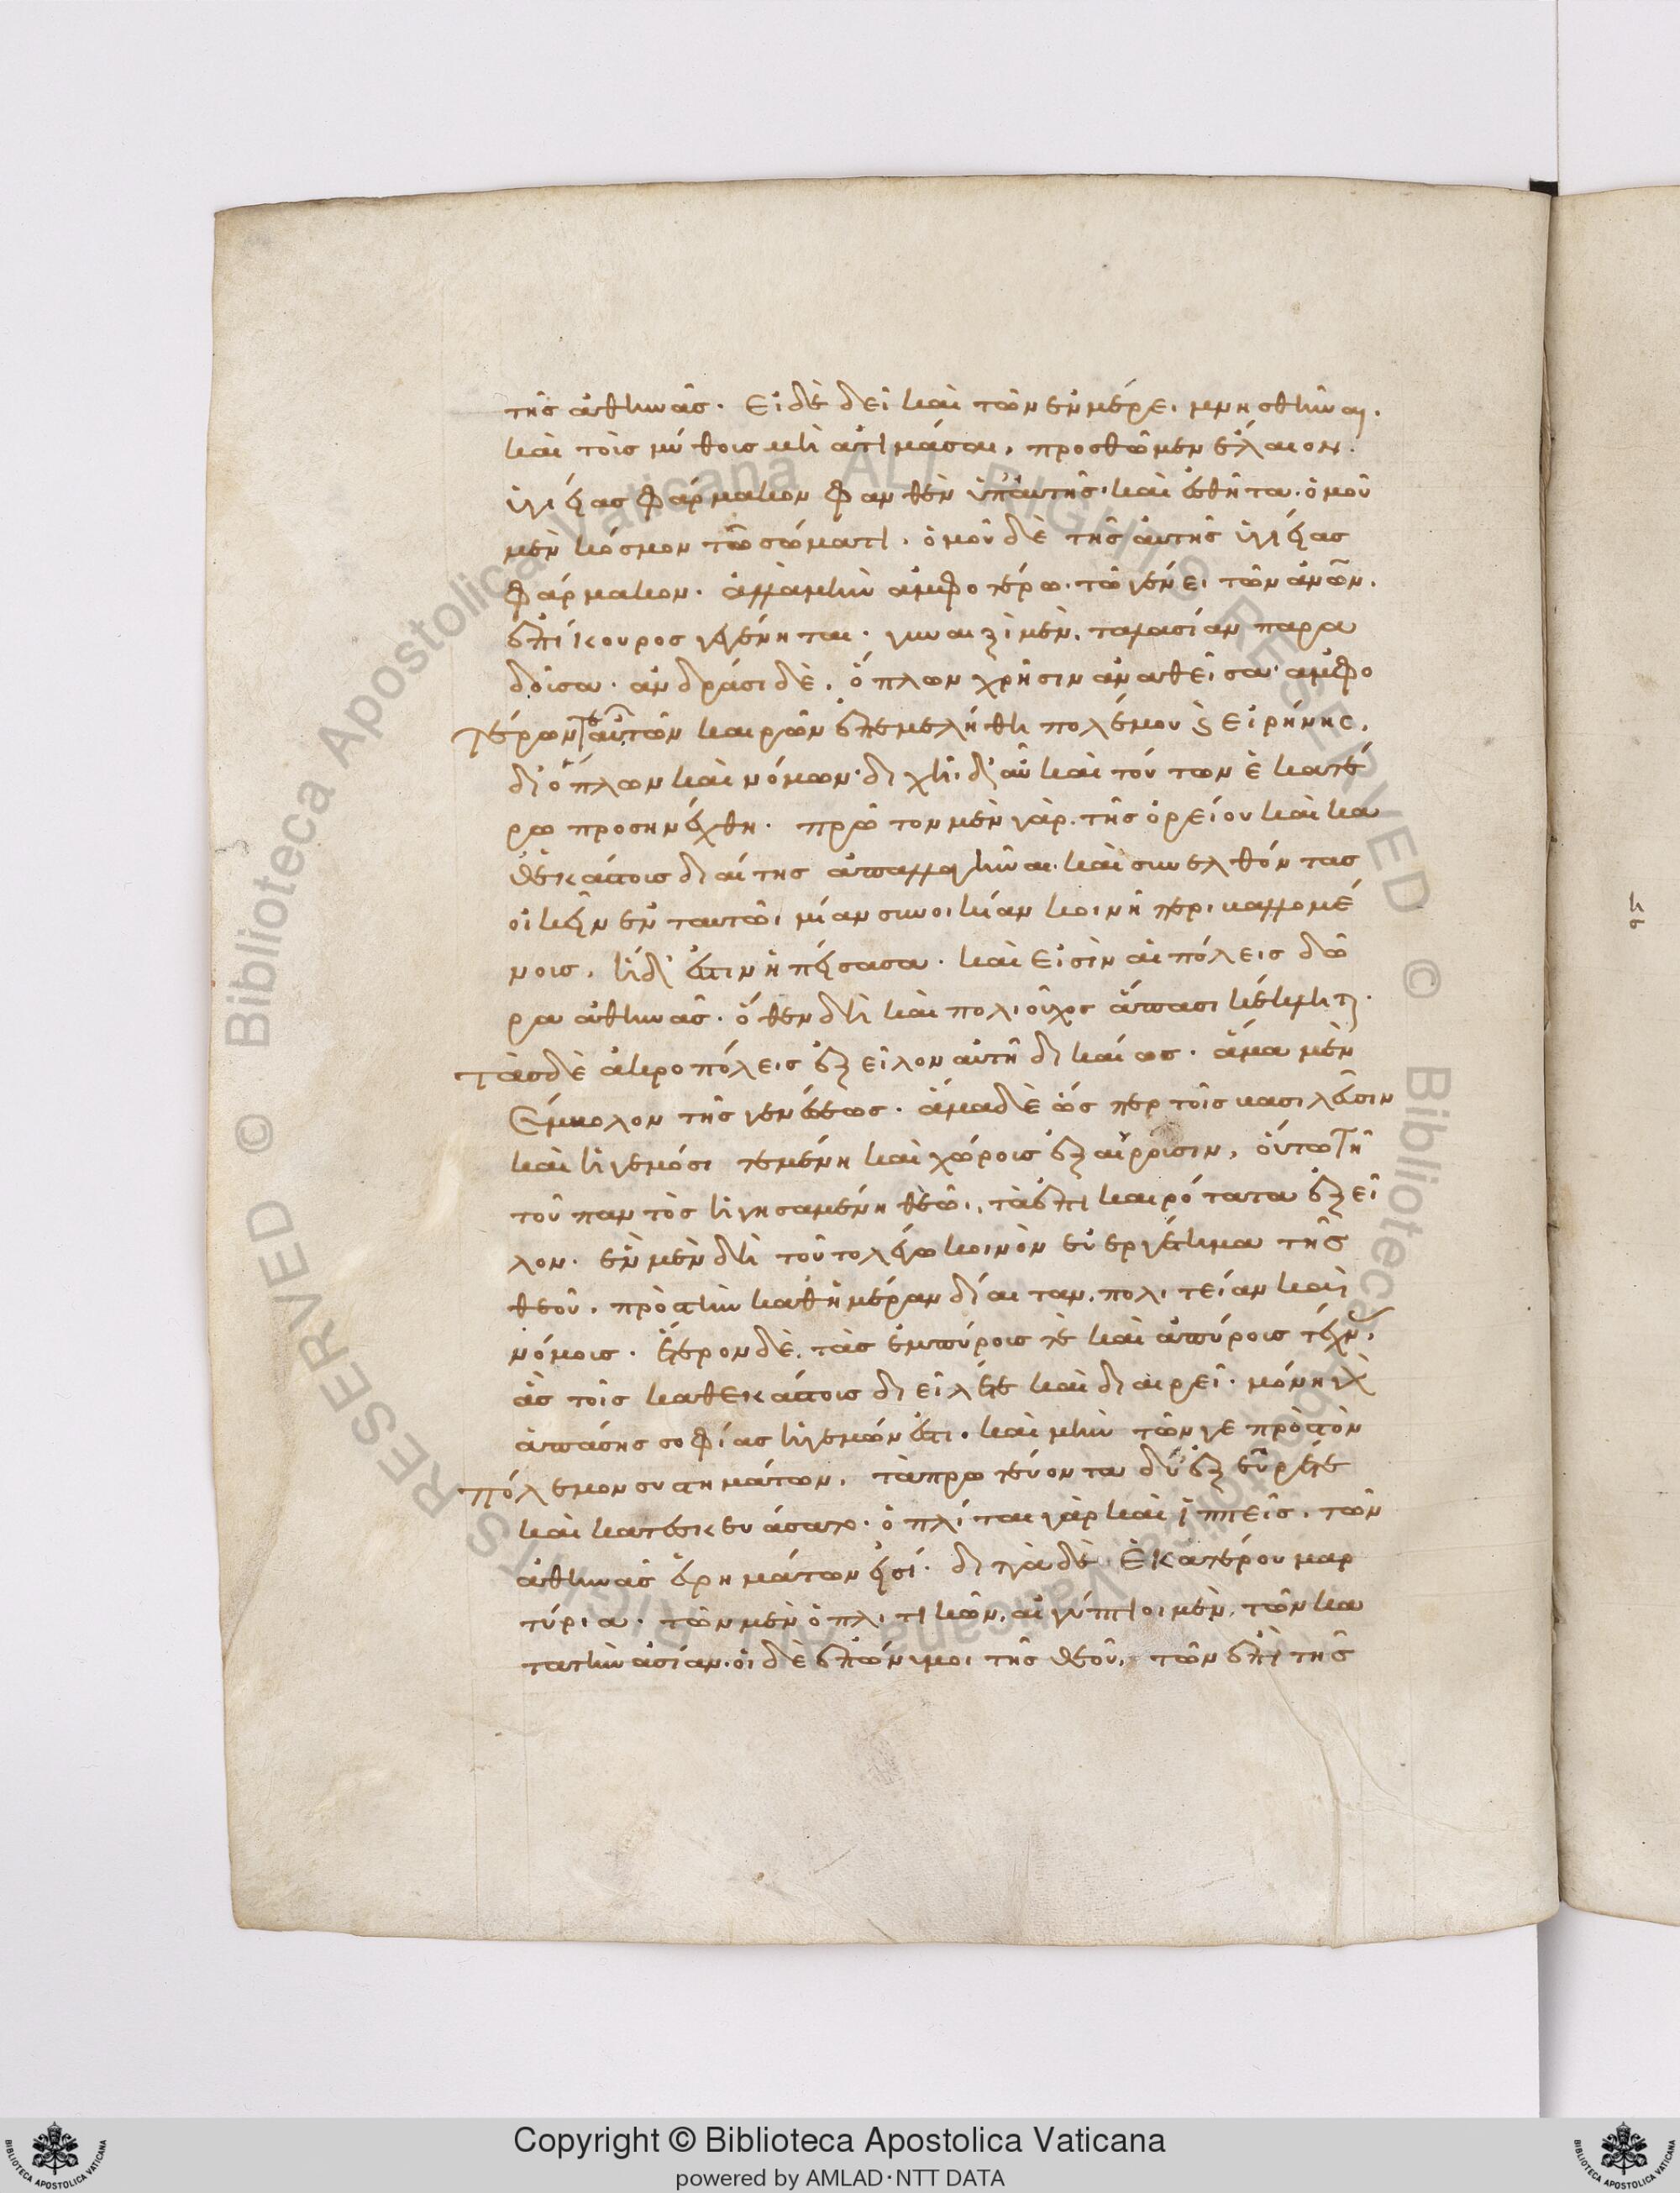 τῆς ἀθηνᾶς. εἰ δὲ δεῖ καὶ τῶν ἐν μέρει μνησθῆναι.
καὶ τοῖς μύθοις μὴ ἀτιμάσαι, προσθῶμεν ἔλαιον.
ὑγιείας φάρμακον φανθὲν ὑπ' αὐτῆς. καὶ ἐσθῆτα. ὁμοῦ
μὲν κόσμον τῶ σώματι. ὁμοῦ δὲ τῆς αὐτῆς ὑγιείας
φάρμακον. ἀλλὰ μὴν ἀμφοτέρω. τῶ γένει τῶν ἀνῶν.
ἐπίκουρος γεγένηται. γυναιξὶ μὲν. ταλασίαν παρα
δοῦσα. ἀνδράσι δὲ. ὅπλων χρῆσιν ἀναθεῖσα. ἀμφο
τέρων τ αὐτῶν καιρῶν ἐπεμελήθη πολέμου ϗ εἰρήνης.
δι' ὅπλων καὶ νόμων. διχῆ. δ' αὖ καὶ τούτων ἑκατέ
ρω προσηνέχθη. πρῶτον μὲν γὰρ. τῆς ὀρείου καὶ κα
θεκάστους διαίτης ἀπαλλαγῆναι. καὶ συνελθόντας
οἰκεῖν ἐν ταυτῶι μίαν συνοικίαν κοινῆ περιβαλλομέ
νους. ἥδ' ἐστιν ἡ πείσασα. καὶ εἰσὶν αἱ πόλεις δῶ
ρα ἀθηνᾶς. ὅθεν δὴ καὶ πολιοῦχος ἅπασι κέκληται.
τὰς δὲ ἀκροπόλεις ἐξεῖλον αὐτῆ δικαίως. ἅμα μὲν
σύμβολον τῆς γενέσεως. ἅμα δὲ ὥσπερ τοῖς βασιλεῦσιν
καὶ ἡγεμόσι τεμένη καὶ χώρους ἐξαίρουσιν, οὕτω τῆ
τοῦ παντὸς ἡγησαμένη θεῶι, τὰ ἐπικαιρότατα ἐξεῖ
λον. ἓν μὲν δὴ τοῦτο λέγω κοινὸν εὐεργέτημα τῆς
θεοῦ. πρὸς τὴν καθημέραν δίαιταν. πολιτείαν καὶ
νόμους. ἕτερον δὲ. τὰς ἐμπύρους τε καὶ ἀπύρους τέχν.
ἃς τοῖς καθεκάστους διεῖλέ τε καὶ διαιρεῖ. μόνη γὰρ
ἁπάσης σοφίας ἡγεμών ἐστι. καὶ μὴν τῶν γε πρὸς τὸν
πόλεμον συστημάτων. τὰ πρωτεύοντα δύ' ἐξεῦρέ τε
καὶ κατεσκευάσατο. ὁπλῖται γὰρ καὶ ἱππεῖς. τῶν
ἀθηνᾶς εὑρημάτων εἰσί. διττὰ δὲ ἑκατέρου μαρ
τύρια. τῶν μὲν ὁπλιτικῶν. αἰγύπτιοι μὲν. τῶν κα
τὰ τὴν ἀσίαν. οἱ δὲ ἐπώνυμοι τῆς θεοῦ, τῶν ἐπὶ τῆς
Copyright © Biblioteca Apostolica Vaticana
powered by AMLAD·NTT DATA